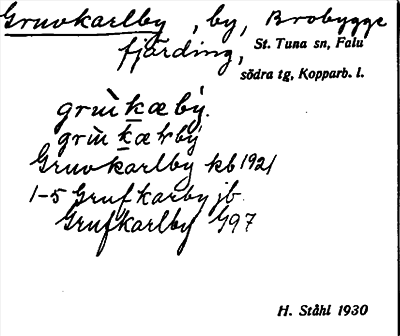 Gruvkarlby, by, Brobygge
fjärding, St. Tuna sn, Falu
södra tg, Kopparb. l.
grùkæbý.
grùkærbý
Gruvkarlby kb 1921
1-5 Grufkarby jb.
Grufkarlby G97
H. Ståhl 1930